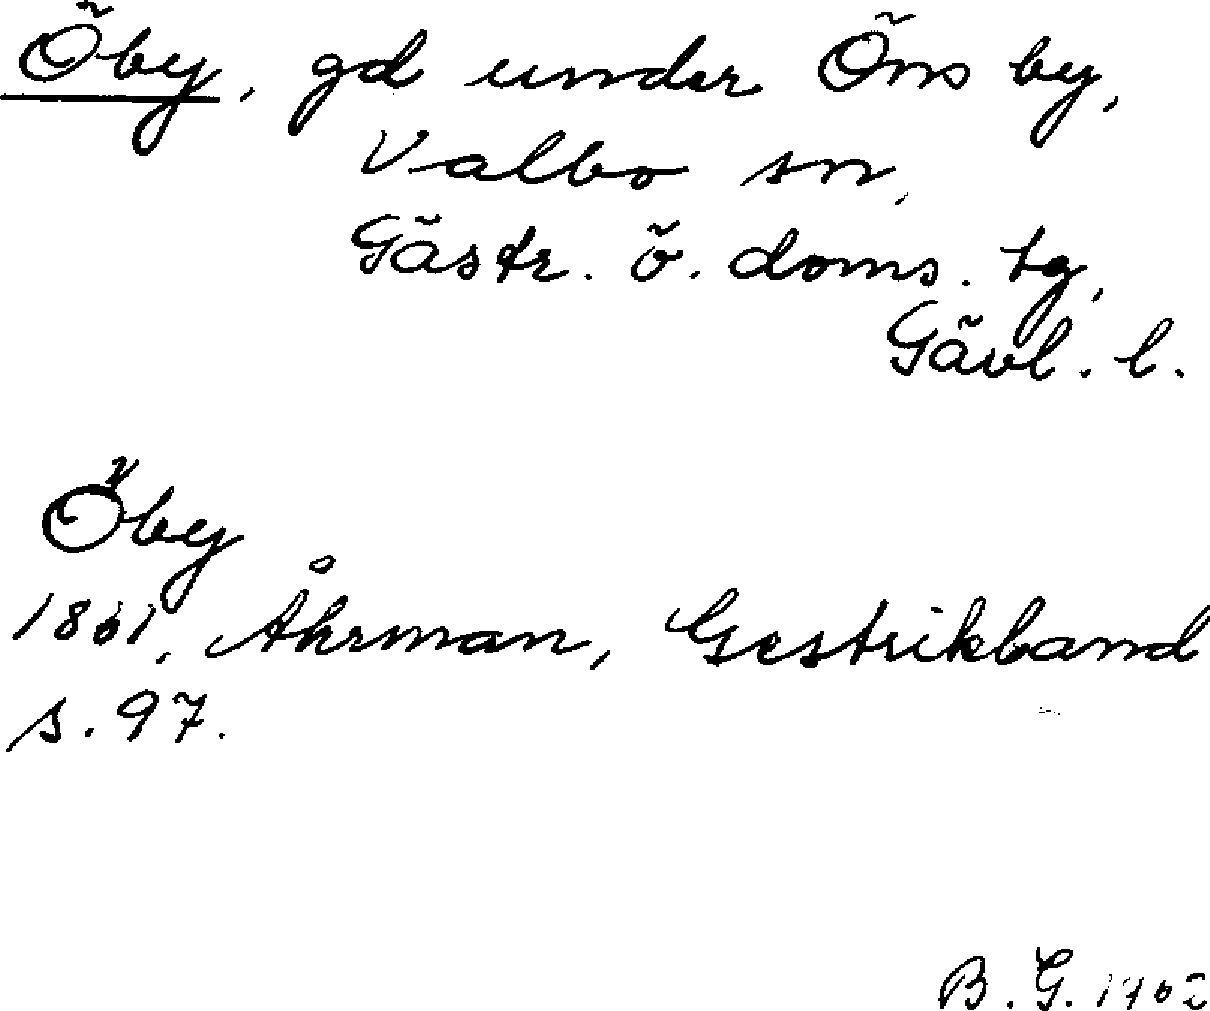 Öby, gd under Öns by,
Valbo sn,
Gästr. ö. doms. tg,
Gävl. l.
Öby
1861, Åhrman, Gestrikland
s. 97.
B. G. 1962